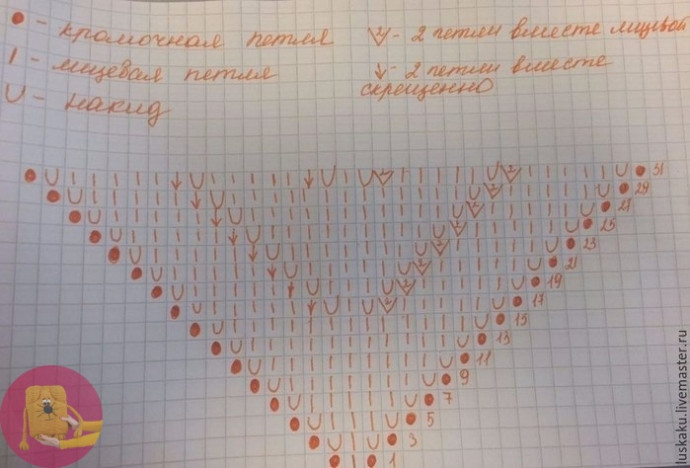 ● - кромочная петля
V - 2 петли вместе лицевой
I - лицевая петля
↓ - 2 петли вместе скрещенно
U - накид
31
29
27
25
23
21
19
17
15
13
11
9
7
5
3
1
luskaku.livemaster.ru